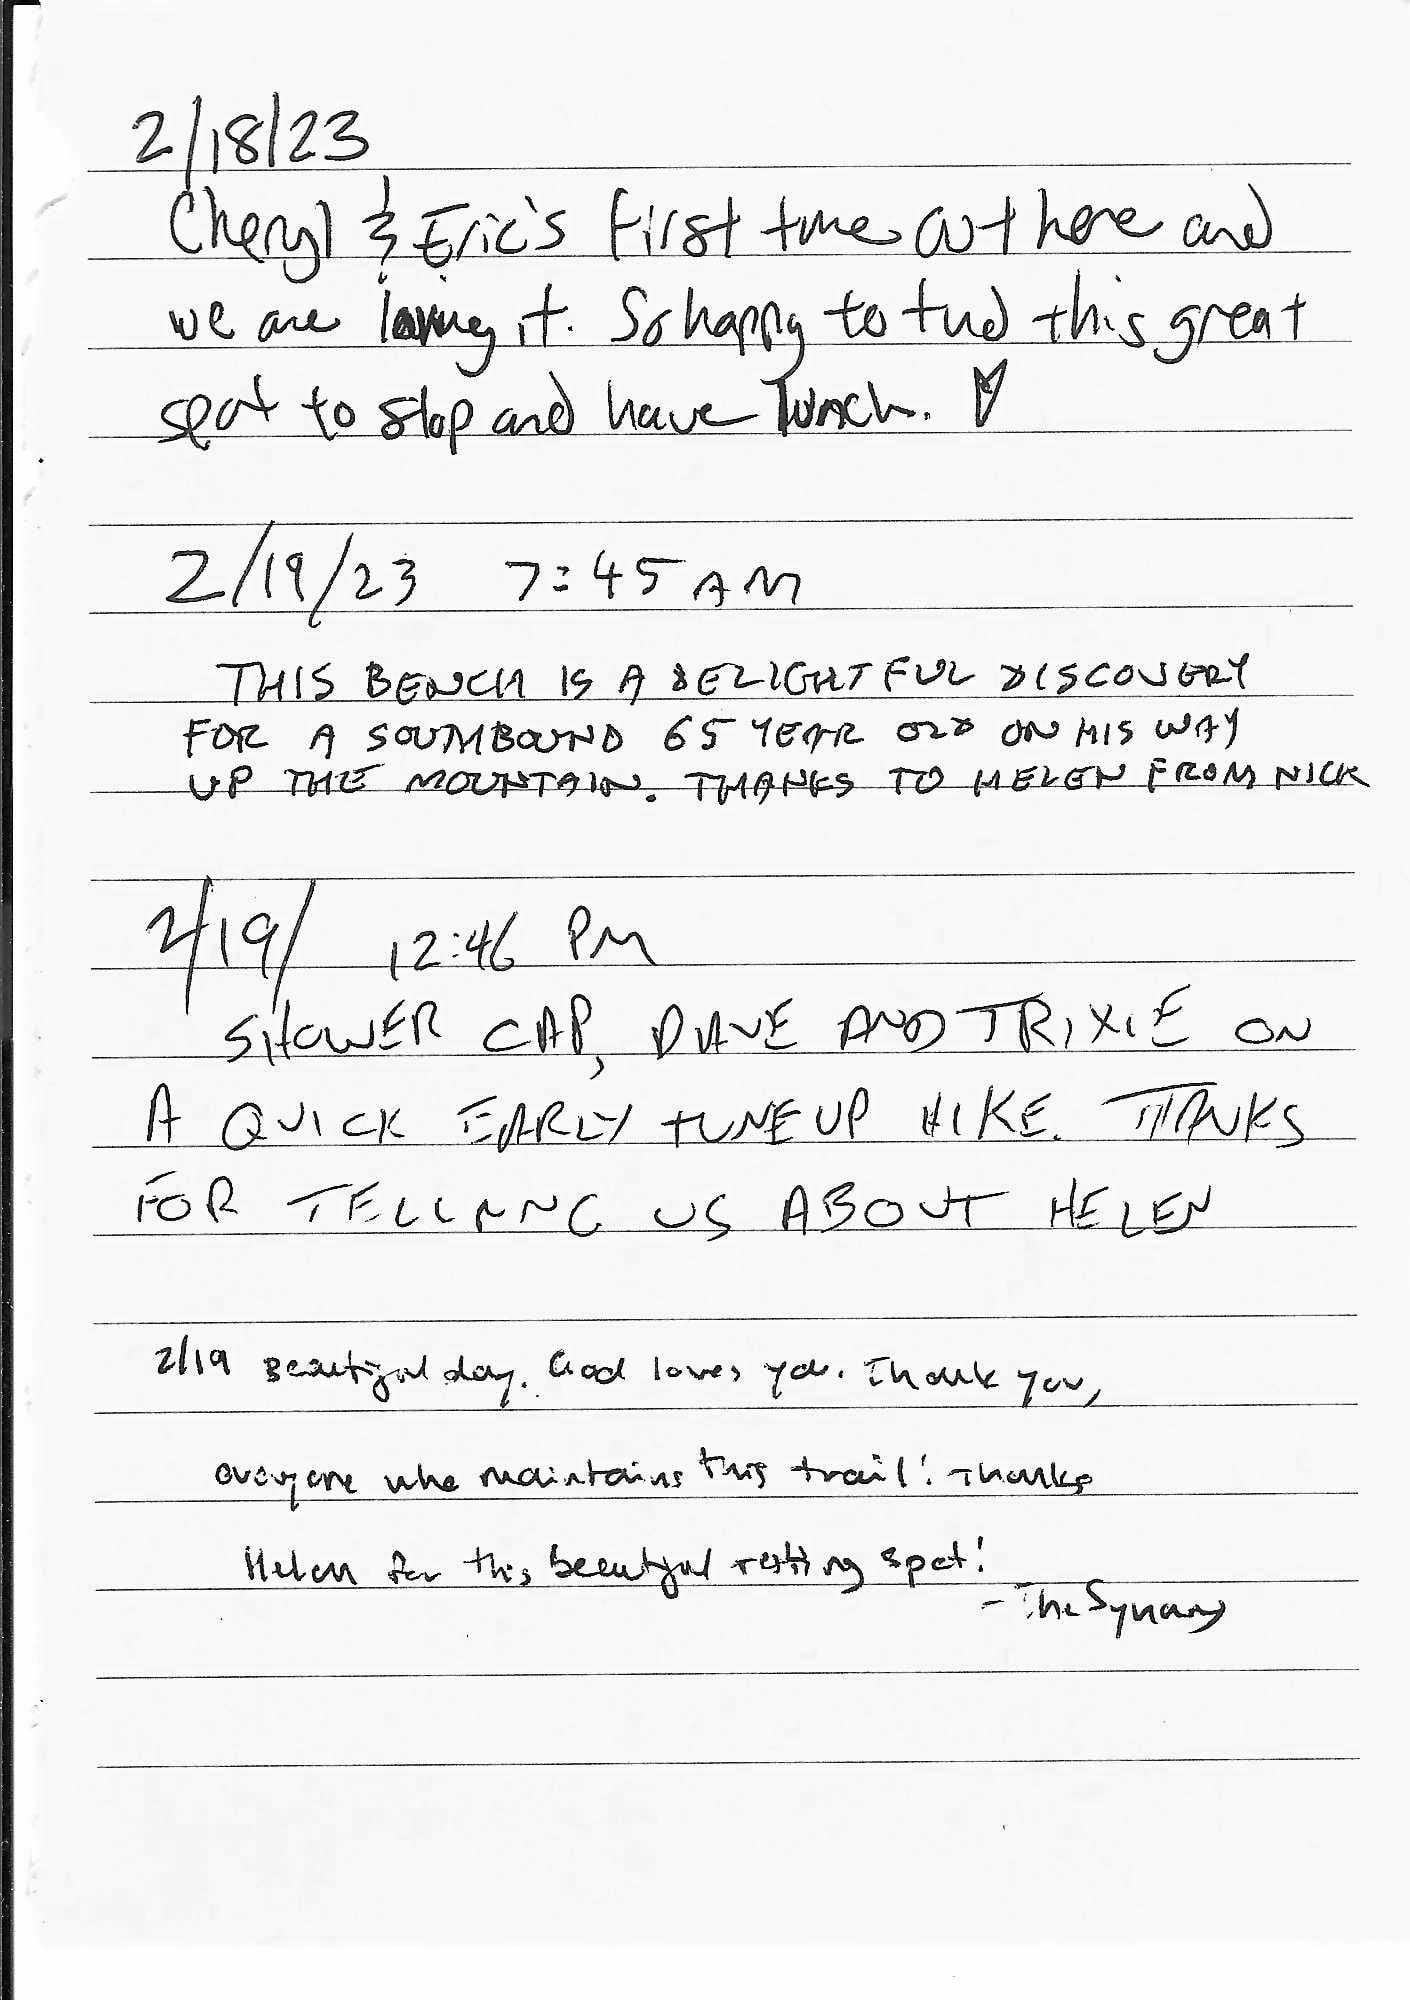 2/18/23
Cheryl & Eric's first time out here and
we are loving it. So happy to find this great
spot to stop and have lunch. ♥
2/19/23 7:45 AM
THIS BENCH IS A DELIGHTFUL DISCOVERY
FOR A SOUTHBOUND 65 YEAR OLD ON HIS WAY
UP THE MOUNTAIN. THANKS TO HELEN FROM NICK
2/19/ 12:46 PM
SHOWER CAP, DAVE AND TRIXIE ON
A QUICK EARLY TUNEUP HIKE. THANKS
FOR TELLING US ABOUT HELEN
2/19 Beautiful day. God loves you. Thank you,
everyone who maintains this trail! Thanks
Helen for this beautiful resting spot!
- The